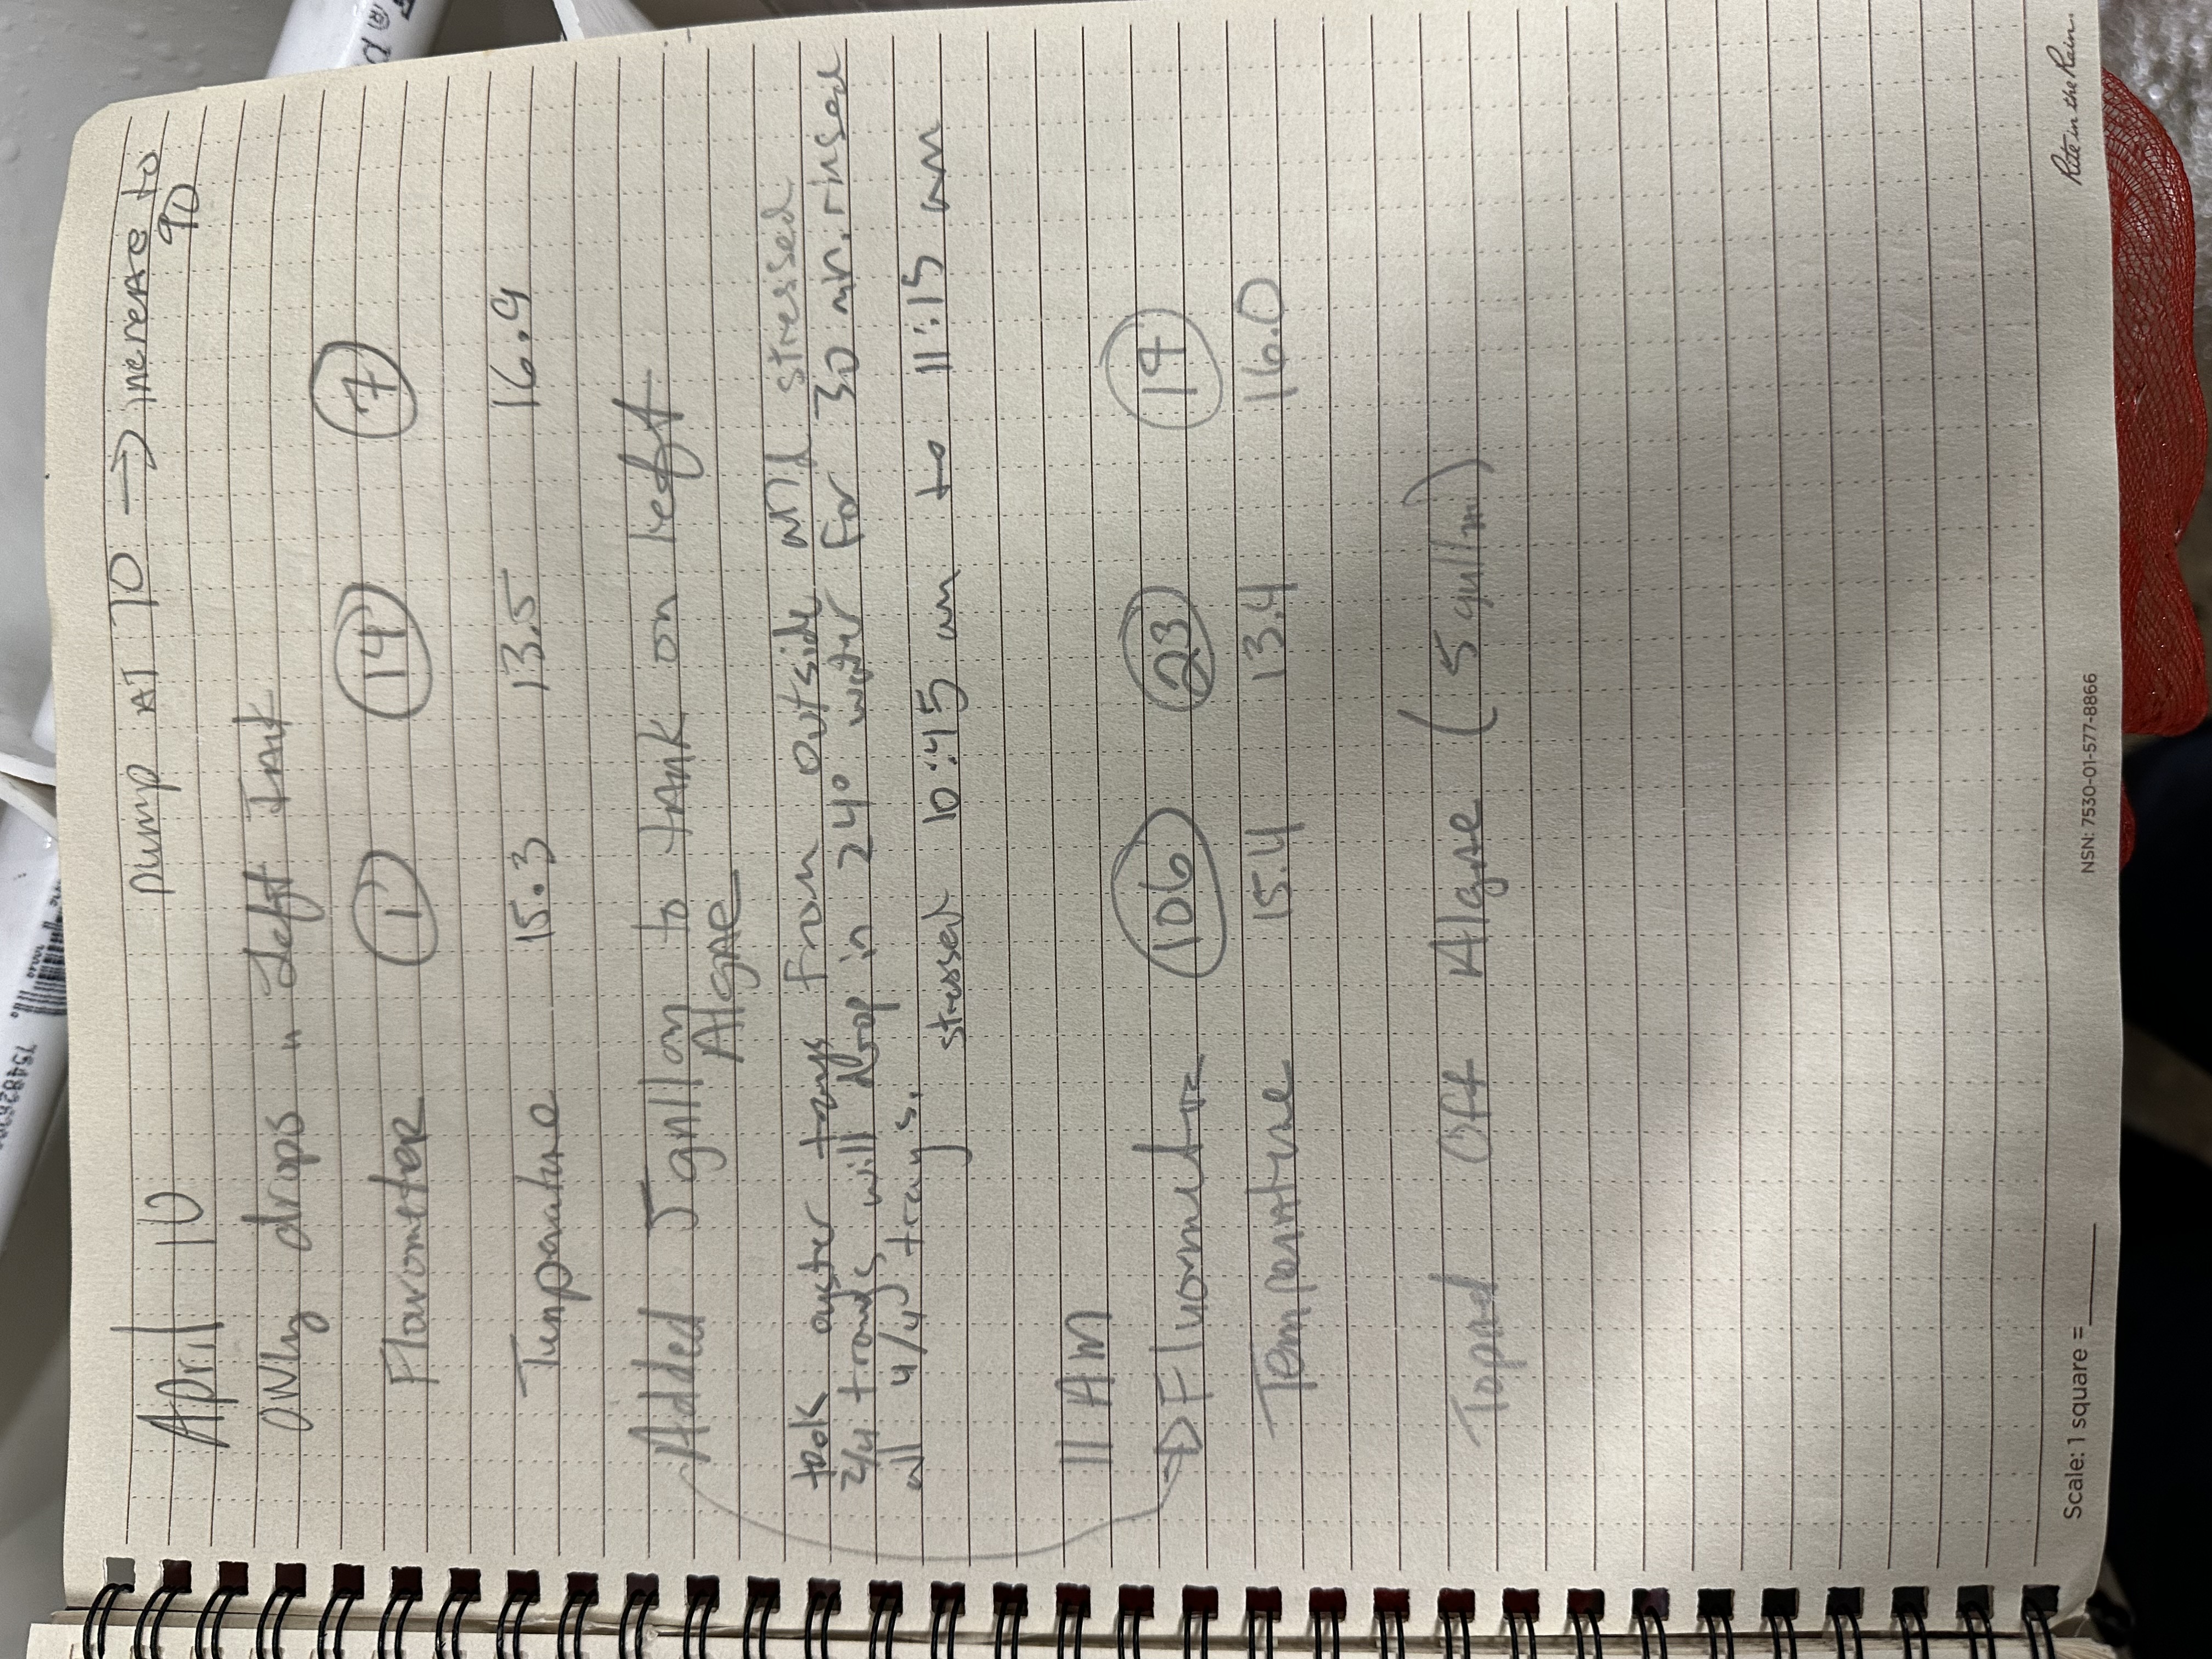 April 10
pump AT 70 → increase to
90
ONly drops in Left Tank
Flourometer 1 14 7
Temperature 15.3 13.5 16.9
Added 5 gallon to tank on left
Algae
took oyster trays from outside and stressed
2/4 trays, will drop in 24° water for 30 min, rinsed
all 4/4 trays.
stressed 10:45 am to 11:15 am
11 AM
Fluormeter 106 23 19
Temperature 15.4 13.4 16.0
Topped Off Algae (5 gallon)
Scale: 1 square =______
NSN: 7530-01-577-8866
Rite in the Rain.